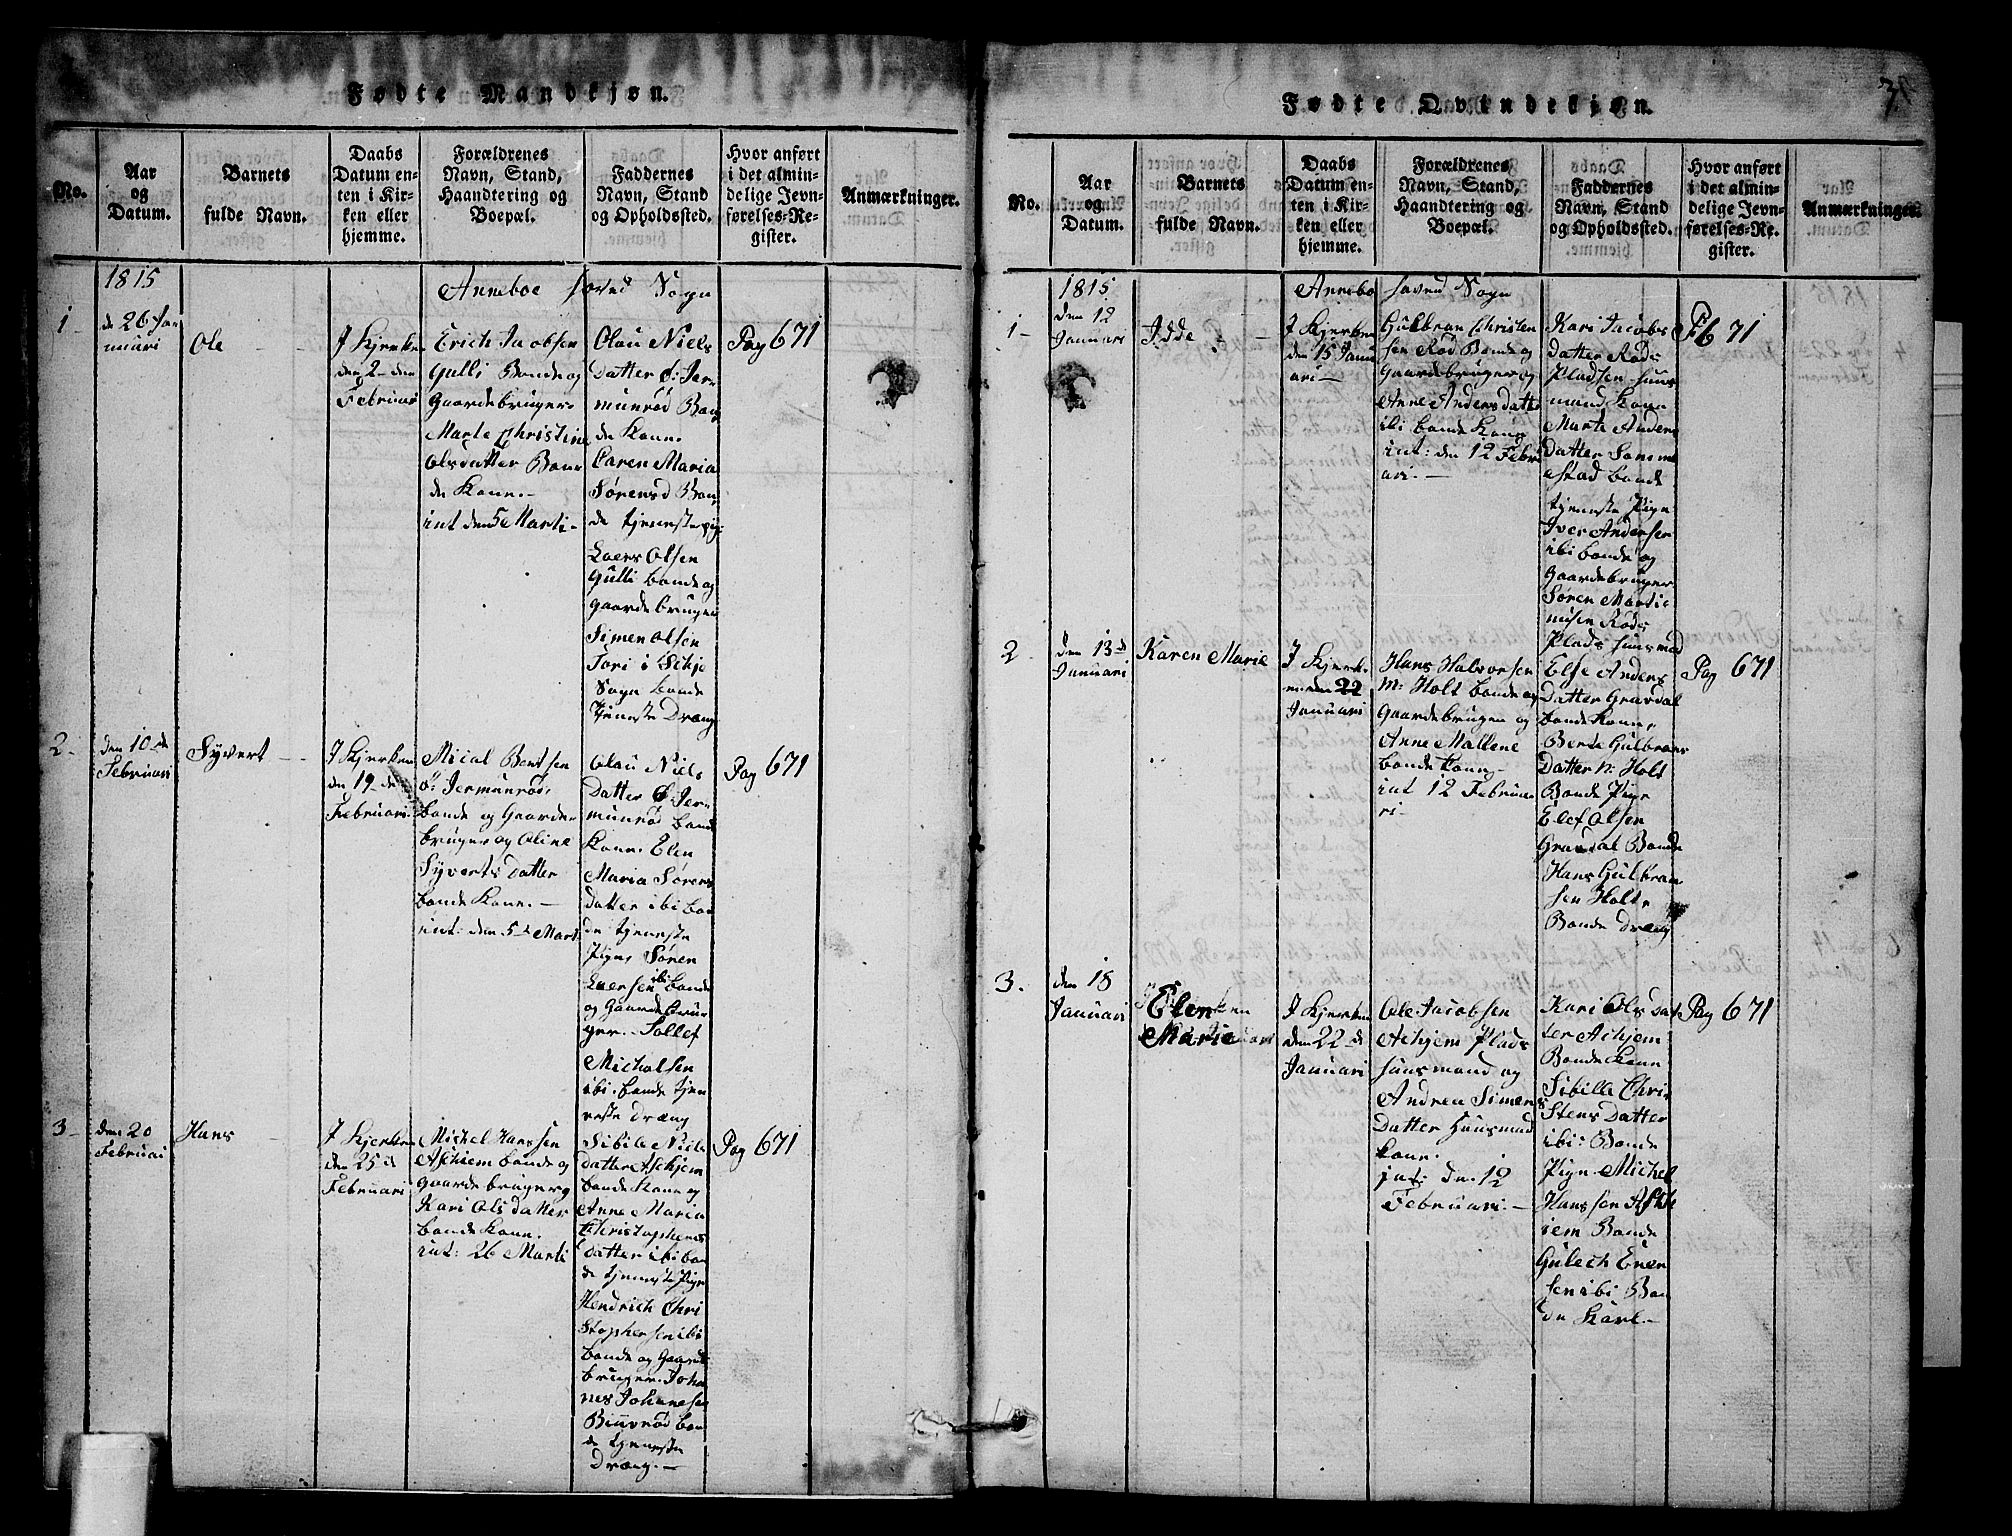 Fødte Mandkjøn.
No.
Aar
og
Datum.
Barnets
fulde Navn.
Daabs
Datum en-
ten i Kir-
ken eller
hjemme.
Forældrenes
Navn, Stand,
Haandtering og
Boepæl.
Faddernes
Navn, Stand
og Opholdssted.
Hvor anført
i det almin-
delige Jevn-
førelses-Re-
gister.
Anmærkninger.
1815
Anneboe hoved Sogn
1
de 26 Jan
nuari
Ole
I Kjerken
den 2 den
Februari
Erich Jacobsen
Gulli Bonde og
Gaardebruger
Marte Christine
Olsdatter Bon
de Kone.
int den 5 Marti
Olau Niels
Datter Ø: Jer-
munrød Bon
de Kone.
Caren Maria
Sørensd Bon
de tjeneste pig
Laers Olsen
Gulli bonde og
gaardebruger
Simen Olsen
Tori i Schje
Sogn bonde
tjeneste Dræng
Pag 671
2
den 10de
Februari
Syvert
I Kjerken
den 19 de
Februari
Mical Bentsen
Ø: Jermunrød
bonde og Gaarde
bruger og Oline
Syverts datter
bonde Kone.
int: den 5te Marti
Olau Niels
Datter Ø: Jer-
munrød bonde
Kone. Elen
Maria Sørens
datter ibi bon
de tjeneste
Pige Søren
Laersen ibi bonde
og Gaardebru
ger. Sollef
Micholsen
ibi. bonde tjen
neste dræng
Pag 671
3
den 20
Februari
Hans
I Kjerken
den 25 d
Februari
Michel Hanssen
Aschiem bonde og
gaardebruger og
Kari Ols datter
bonde Kone.
int: 26 Marti
Sibile Niels
datter Aschjem
bonde Kone og
Anne Maria
Christophers
datter ibi bon
de tjeneste Pige
Hendrich Chri
stophersen ibi
bonde og Gaarde
bruger. Joha
nes Johanesen
Biuerød bon
de tjeneste
Dræng.
Pag 671
Fødte Qvindekjøn.
3
No.
Aar
og
Datum.
Barnets
fulde Navn.
Daabs
Datum en-
ten i Kir-
ken eller
hjemme.
Forældrenes
Navn, Stand,
Haandtering og
Boepæl.
Faddernes
Navn, Stand
og Opholdssted.
Hvor anført
i det almin-
delige Jevn-
førelses-Re-
gister.
Anmærkninger.
1815
Annebo hoved Sogn
1
den 12
Januari
Idde
I Kjerken
den 15 Janu
ari
Gulbran Christen
sen Rød Bonde og
Gaardebruger og
Anne Andersdatter
ibi bonde Kone
int: den 12 Febru
ari.
Kari Jacobs
datter Røds
Pladsen huus
mand Kone
Marte Anders
datter Somme
stad bonde
tjeneste Pige
Iver Andersen
ibi bonde og
gaardebruger
Søren Marti
nusen Røds
Plads huusmad
P 671
2
den 13d
Januari
Karen Marie
I Kjerk
en den 22
Januari
Hans Halvorsen
M: Holt bonde og
Gaardebruger og
Anne Mallene
bonde Kone
int 12 Februa
ri
Else Anders
Datter Gravdal
bonde Kone,
Berte Gulbrans
Datter N: Holt
Bonde Pige
Elef Olsen
Gravdal Bonde
Hans Gulbran
sen Holt
Bonde Dræng
Pag 671
3.
den 18
Januari
Elen
Marie
I Kjerken
den 22 d
Januari
Ole Jacobsen
Achjem Plads
huusmand og
Andrea Simens
Datter Huusmad
kone.
int: den 12
Februari.
Kari Ols dat
ter Achjem
Bonde Kone
Sibille Chri
stens Datter
ibi: Bonde
Pige Michel
Hanssen Asch
iem Bonde
Gulech Ener
sen ibi Bon
de Karl.
Pag 671